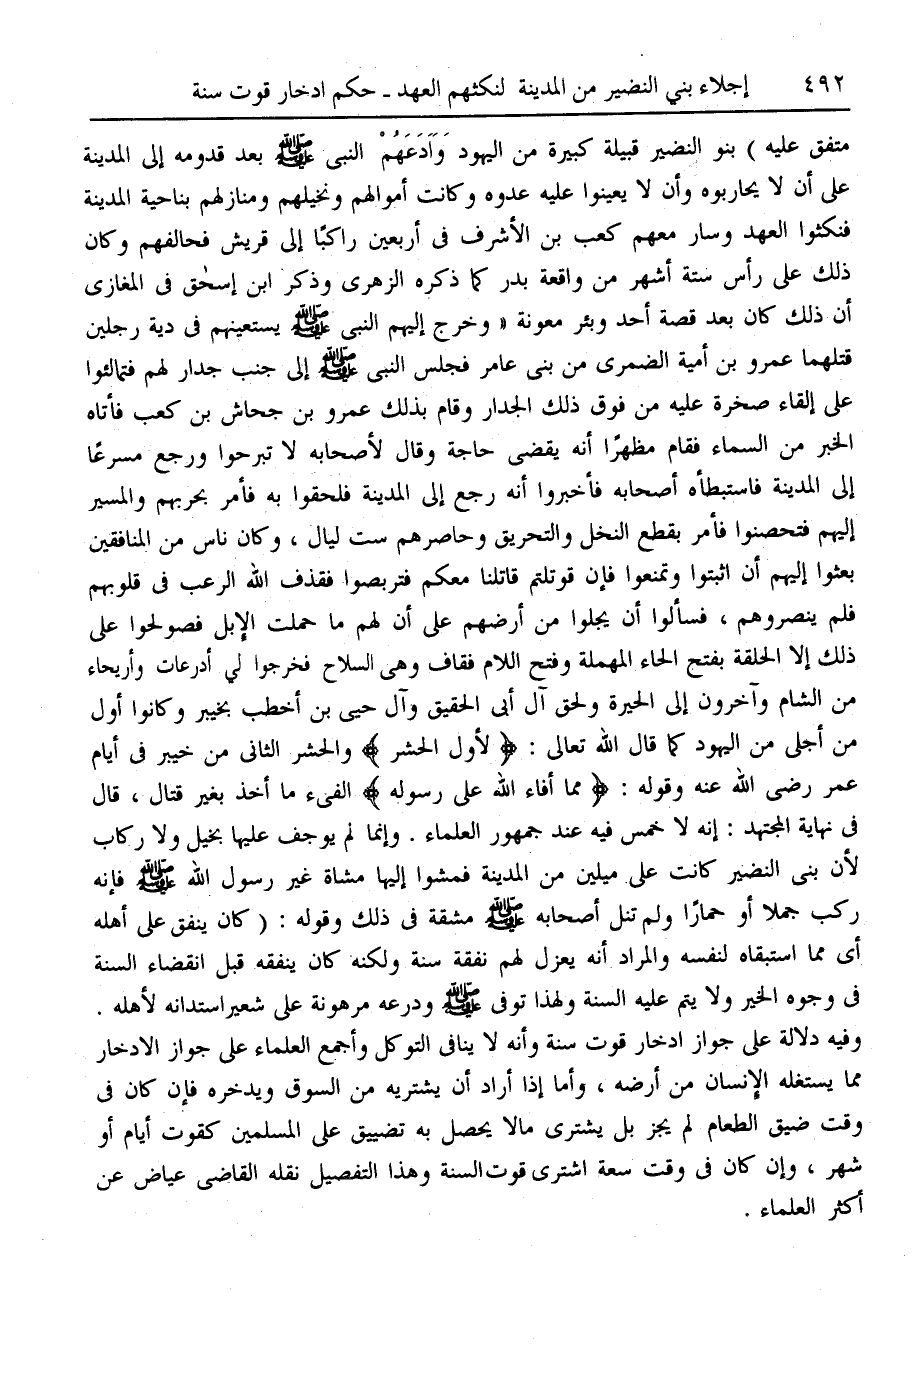 ٤٩٢ إجلاء بني النضير من المدينة لنكثهم العهد ـ حكم ادخار قوت سنة
متفق عليه ) بنو النضير قبيلة كبيرة من اليهود وَادَعَهُمْ النبى ﷺ بعد قدومه إلى المدينة
على أن لا يحاربوه وأن لا يعينوا عليه عدوه وكانت أموالهم ونخيلهم ومنازلهم بناحية المدينة
فنكثوا العهد وسار معهم كعب بن الأشرف فى أربعين راكبًا إلى قريش فحالفهم وكان
ذلك على رأس ستة أشهر من واقعة بدر كما ذكره الزهرى وذكر ابن إسحٰق فى المغازى
أن ذلك كان بعد قصة أحد وبئر معونة « وخرج إليهم النبى ﷺ يستعينهم فى دية رجلين
قتلهما عمرو بن أمية الضمرى من بنى عامر فجلس النبى ﷺ إلى جنب جدار لهم فتمالئوا
على إلقاء صخرة عليه من فوق ذلك الجدار وقام بذلك عمرو بن جحاش بن كعب فأتاه
الخبر من السماء فقام مظهرًا أنه يقضى حاجة وقال لأصحابه لا تبرحوا ورجع مسرعًا
إلى المدينة فاستبطأه أصحابه فأخبروا أنه رجع إلى المدينة فلحقوا به فأمر بحربهم والمسير
إليهم فتحصنوا فأمر بقطع النخل والتحريق وحاصرهم ست ليال ، وكان ناس من المنافقين
بعثوا إليهم أن اثبتوا وتمنعوا فإن قوتلتم قاتلنا معكم فتربصوا فقذف الله الرعب فى قلوبهم
فلم ينصروهم ، فسألوا أن يجلوا من أرضهم على أن لهم ما حملت الإبل فصولحوا على
ذلك إلا الحلقة بفتح الحاء المهملة وفتح اللام فقاف وهى السلاح فخرجوا لي أدرعات وأريحاء
من الشام وآخرون إلى الحيرة ولحق آل أبى الحقيق وآل حيى بن أخطب بخيبر وكانوا أول
من أجلى من اليهود كما قال الله تعالى : ﴿ لأول الحشر ﴾ والحشر الثانى من خيبر فى أيام
عمر رضى الله عنه وقوله : ﴿ مما أفاء الله على رسوله ﴾ الفىء ما أخذ بغير قتال ، قال
فى نهاية المجتهد : إنه لا خمس فيه عند جمهور العلماء . وإنما لم يوجف عليها بخيل ولا ركاب
لأن بنى النضير كانت على ميلين من المدينة فمشوا إليها مشاة غير رسول الله ﷺ فإنه
ركب جملا أو حمارًا ولم تنل أصحابه ﷺ مشقة فى ذلك وقوله : ( كان ينفق على أهله
أى مما استبقاه لنفسه والمراد أنه يعزل لهم نفقة سنة ولكنه كان ينفقه قبل انقضاء السنة
فى وجوه الخير ولا يتم عليه السنة ولهذا توفى ﷺ ودرعه مرهونة على شعير استدانه لأهله .
وفيه دلالة على جواز ادخار قوت سنة وأنه لا ينافى التوكل وأجمع العلماء على جواز الادخار
مما يستغله الإنسان من أرضه ، وأما إذا أراد أن يشتريه من السوق ويدخره فإن كان فى
وقت ضيق الطعام لم يجز بل يشترى مالا يحصل به تضييق على المسلمين كقوت أيام أو
شهر ، وإن كان فى وقت سعة اشترى قوت السنة وهذا التفصيل نقله القاضى عياض عن
أكثر العلماء .